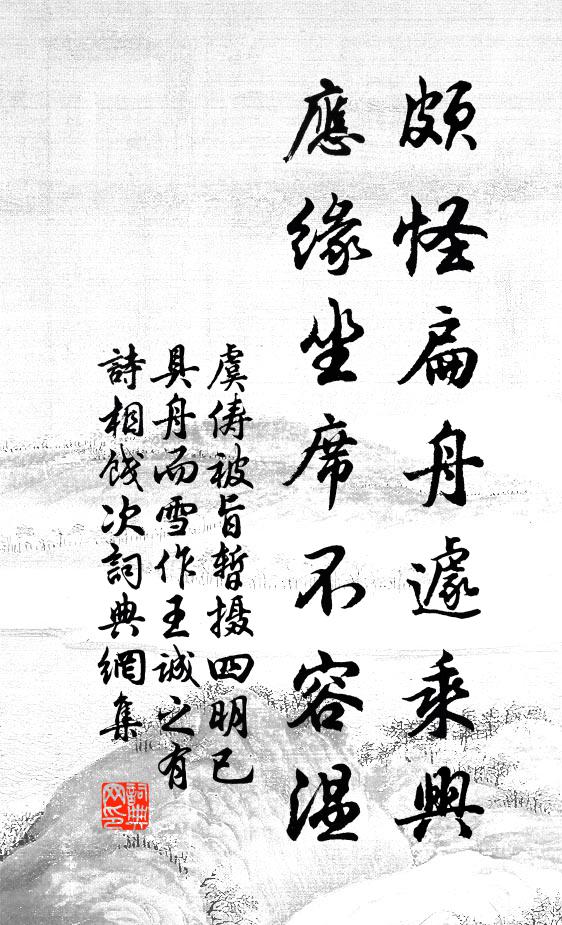 頗怪扁舟遽乘興
應緣坐席不容温
虞儔被旨暫摄四明已
具舟而雪作王诚之有
詩相餞次詞典網集
詞典网印